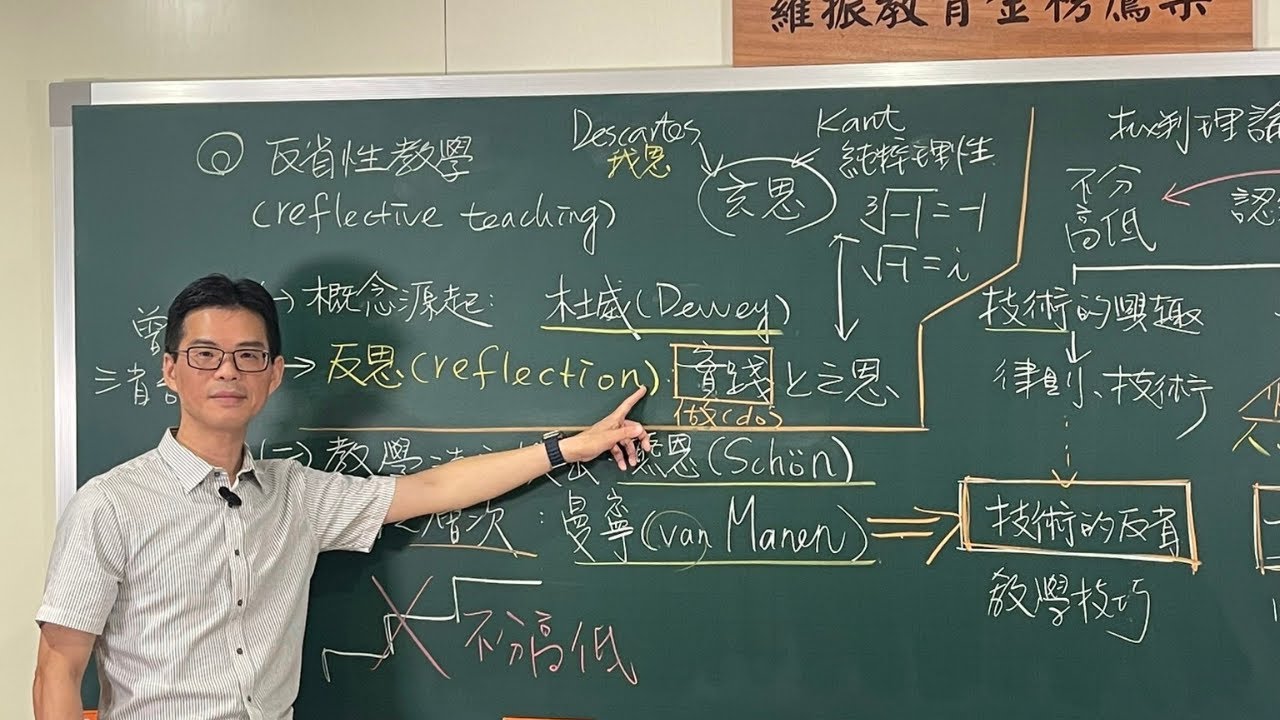 羅振教育金榜鷹架
反省性教學
(reflective teaching)
Descartes
我思
Kant
純粹理性
玄思
∛-1=-1
√-1=i
(一)概念源起:杜威(Dewey)
→反思(reflection):實踐之思
做(do)
曾
三省
(二)教學 思(Schön)
層次:曼寧(van Manen)⇒
不分高低
批判理論
不分
高低
認
技術的興趣
律則、技術
技術的反省
教學技巧